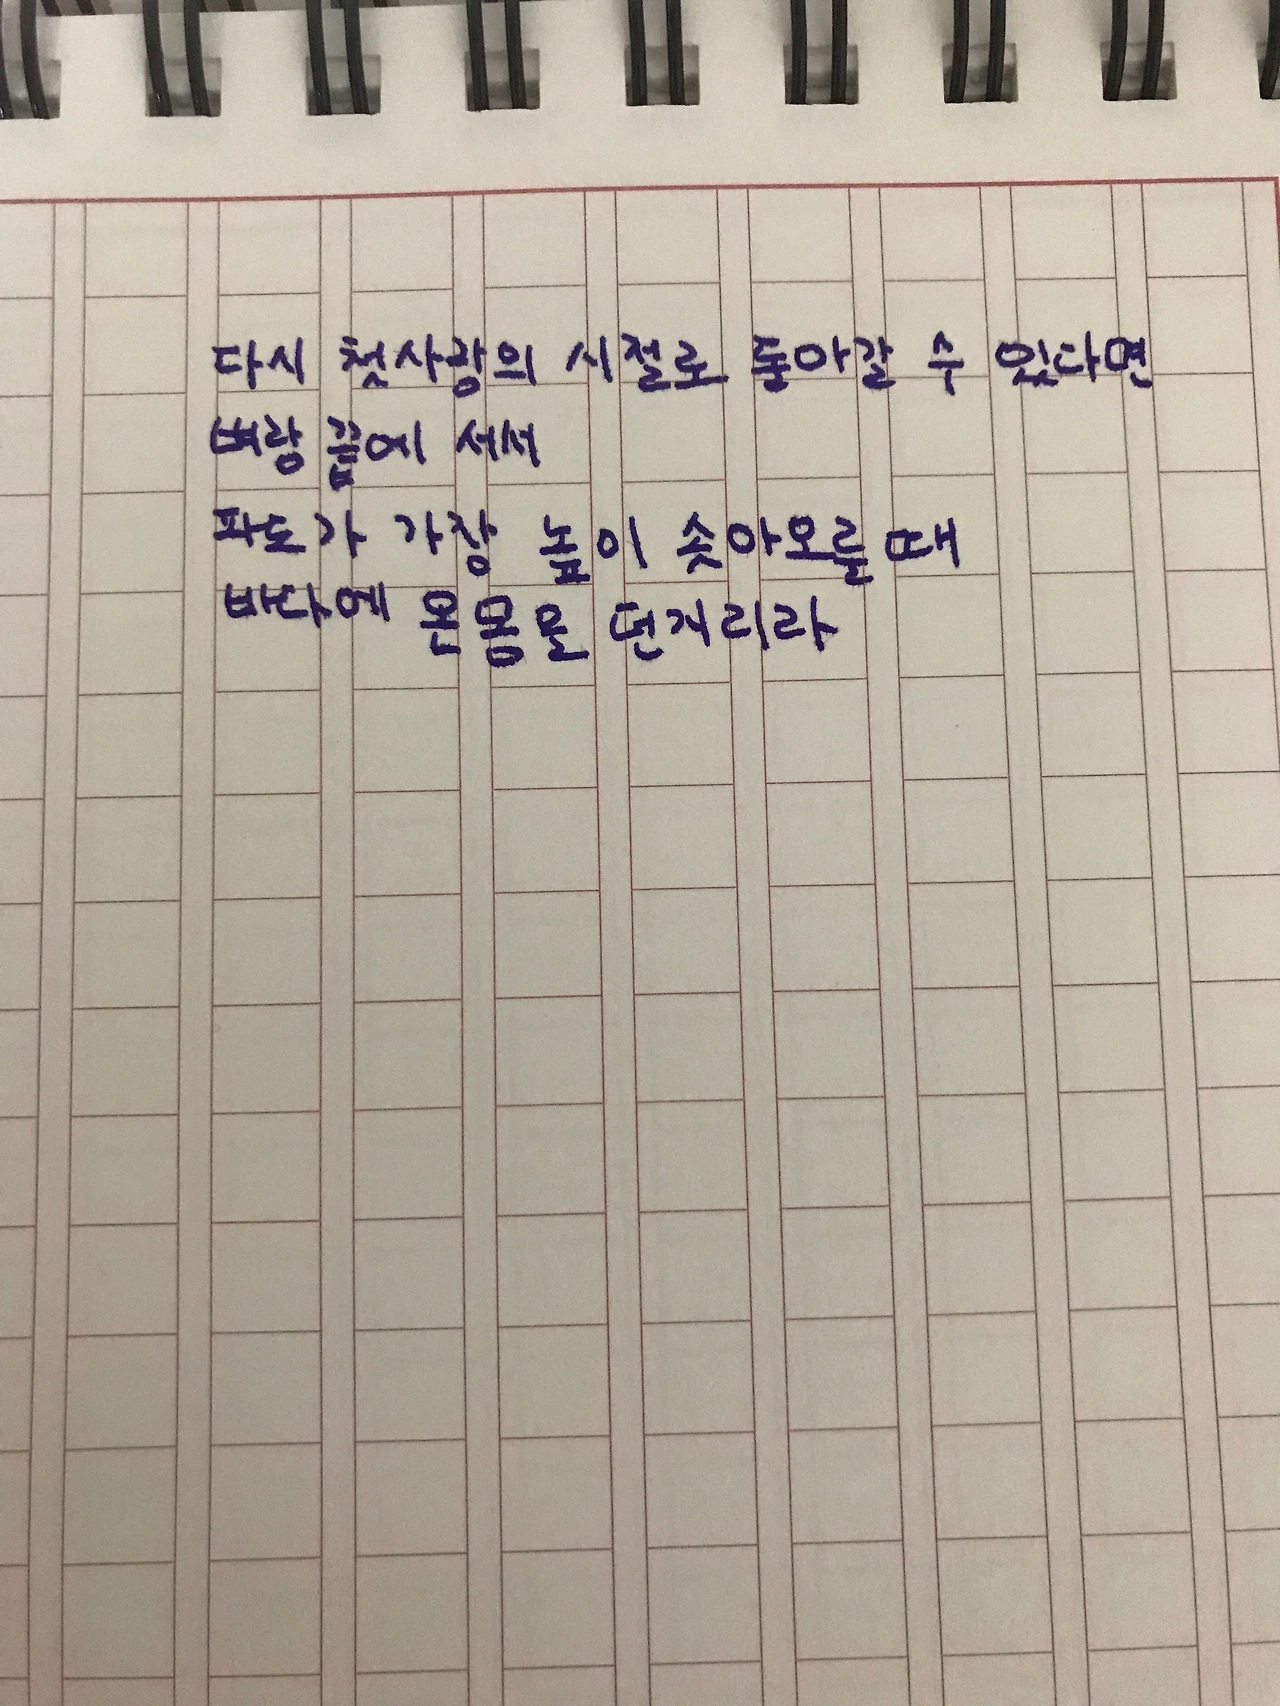 다시 첫사랑의 시절로 돌아갈 수 있다면
벼랑 끝에 서서
파도가 가장 높이 솟아오를 때
바다에 온몸을 던지리라